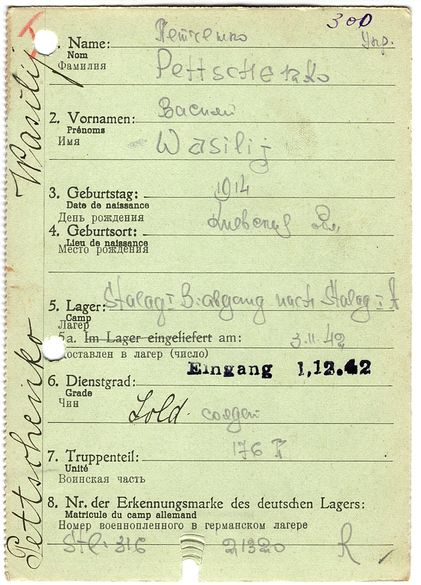 300
Укр.
Петченко
1. Name: Pettschenko
Nom
Фамилия
Василий
2. Vornamen: Wasilij
Prénoms
Имя
3. Geburtstag: 1914
Date de naissance
День рождения
Киевская
4. Geburtsort:
Lieu de naissance
Место рождения
5. Lager: Stalag I B abgang nach Stalag I A
Camp
Лагер
5a. Im Lager eingeliefert am: 3.11.42
Доставлен в лагер (число)
Eingang 1.12.42
6. Dienstgrad:
Grade
Чин
Sold. солдат
7. Truppenteil: 176
Unité
Воинская часть
8. Nr. der Erkennungsmarke des deutschen Lagers:
Matricule du camp allemand
Номер военнопленного в германском лагере
Stl. 316 21320 R
Pettschenko Wasilij